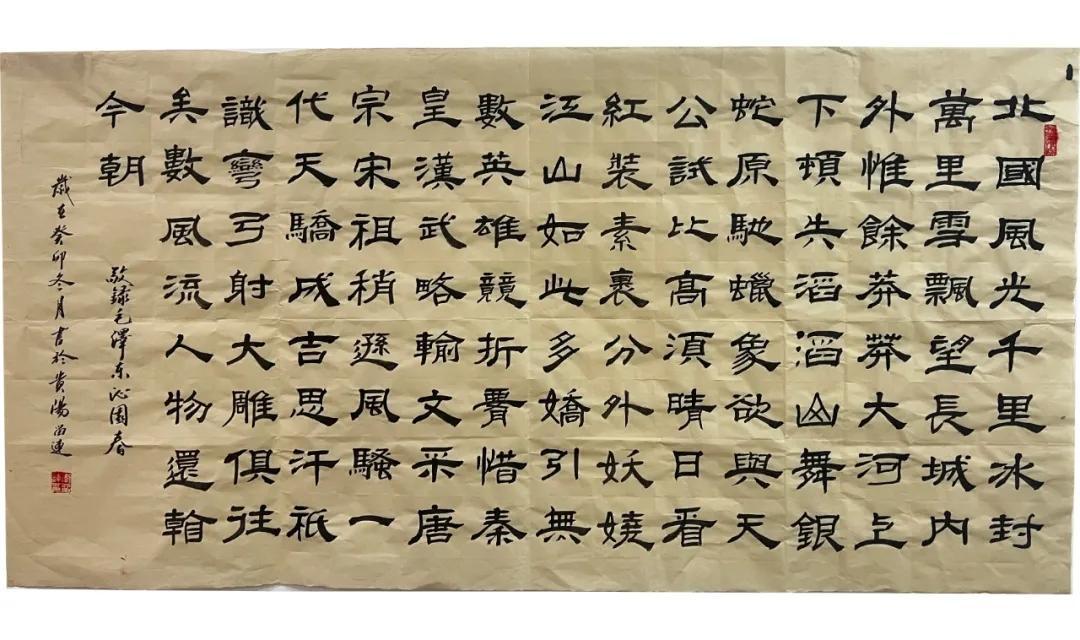 北國風光千里冰封
萬里雪飄望長城内
外惟餘莽莽大河上
下頓失滔滔山舞銀
蛇原馳蠟象欲與天
公試比高須晴日看
紅裝素裹分外妖嬈
江山如此多嬌引無
數英雄競折腰惜秦
皇漢武略輸文采唐
宗宋祖稍遜風騷一
代天驕成吉思汗祇
識彎弓射大雕俱往
矣數風流人物還看
今朝
敬録毛澤東沁園春
歲在癸卯冬月書於貴陽